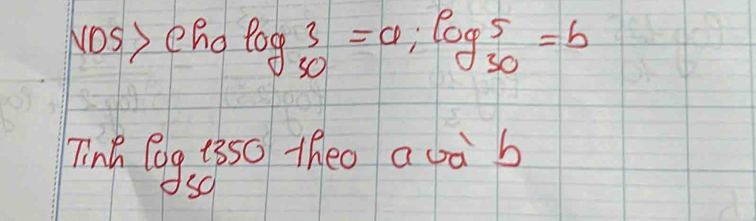 VD5> Cho log₃₀3 = a; log₃₀5 = b
Tính log₃₀1350 theo a và b